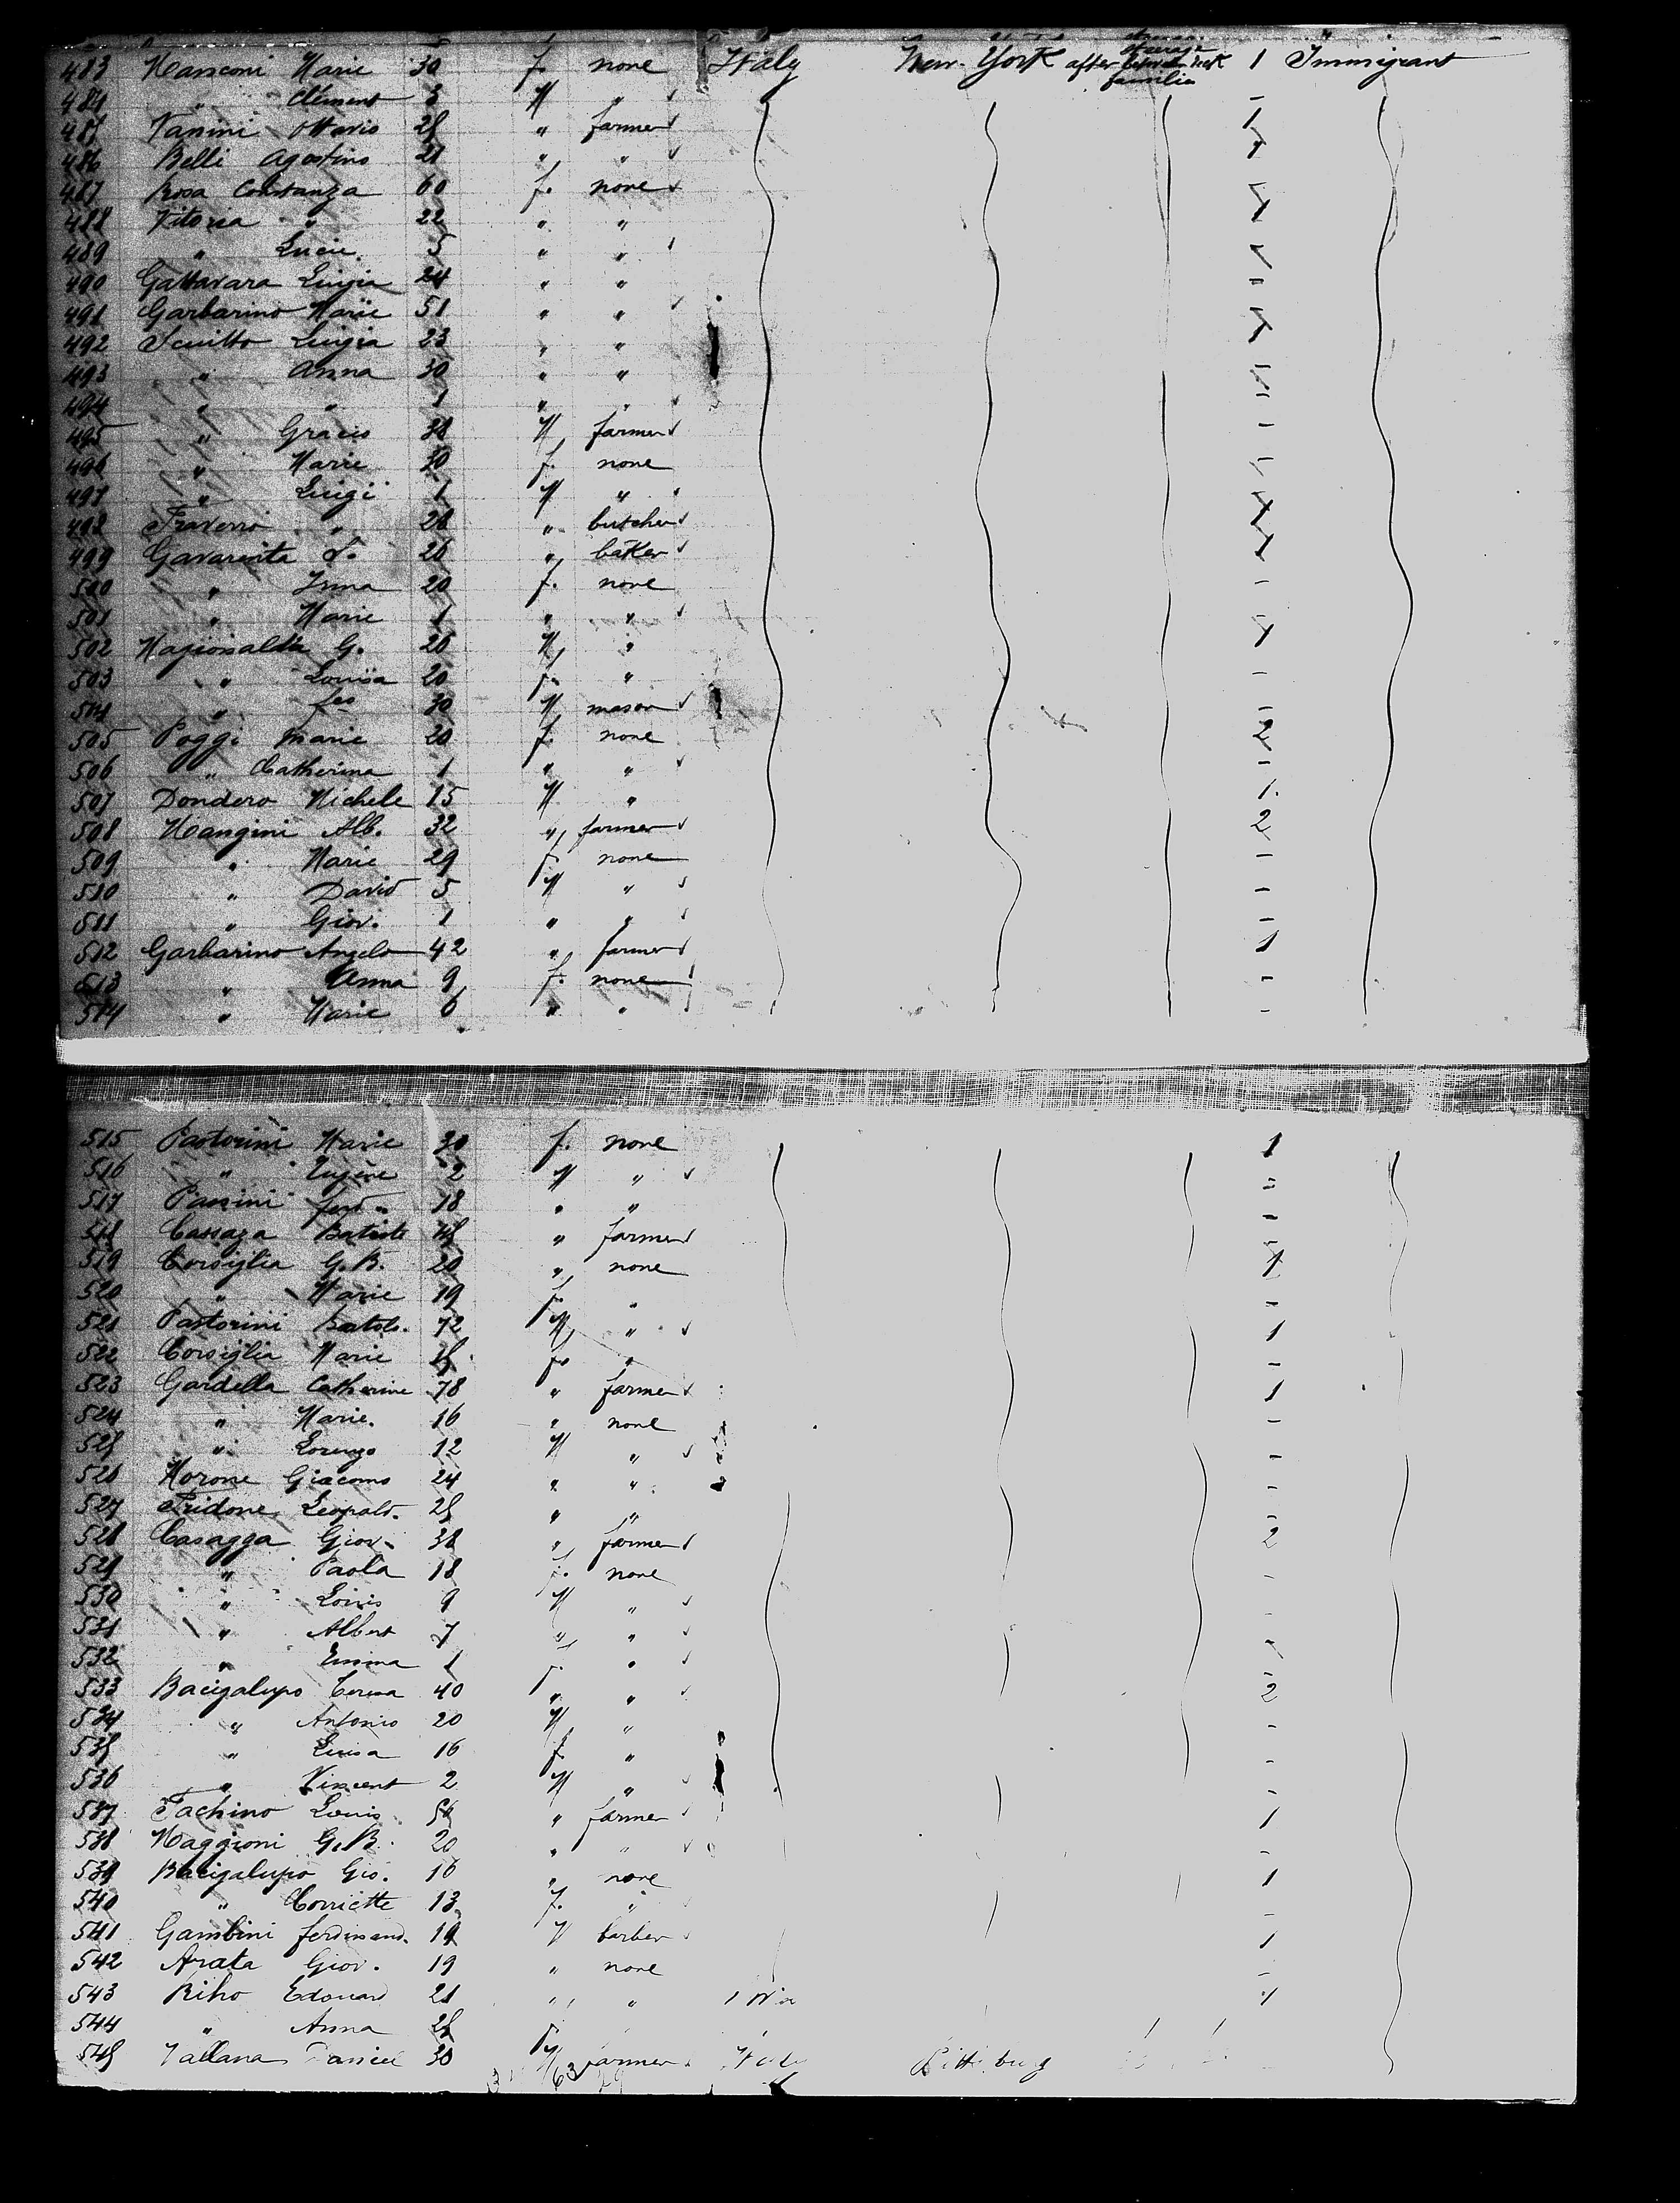 483 Manconi Marie 30 f. none Italy New-York after steerage familia 1 Immigrant
484 " Clément 3 M "
485 Vanini Ottavio 25 " farmer 1
486 Belli Agostino 21 " " 1
487 Rosa Constanza 60 f. none
488 Vitoria " 22 " " 1
489 " Lucie 5 " "
490 Gattavara Luigia 24 " " -
491 Garbarino Marie 51 " "
492 Scuitto Luigia 23 " " 1
493 " Anna 30 " "
494 " " 1 " " -
495 " Gracio 38 M farmer -
496 " Marie 30 f. none
497 " Luigi 1 M "
498 Traverso " 28 " butcher 1
499 Gavarenta 26 " baker 1
500 " Irma 20 f. none -
501 " Marie 1 " " -
502 G. 28 M " 1
503 " Louisa 20 f. " -
504 " 30 M mason -
505 Poggi Marie 20 f. none 2
506 " Catherina 1 " " -
507 Dondero Michele 15 M " 1
508 Mangini Alb. 32 " farmer 2
509 " Marie 29 f. none -
510 " David 5 M " -
511 " Giov. 1 " " -
512 Garbarino Angelo 42 " farmer 1
513 " Anna 9 f. none -
514 " Marie 6 " " -
515 Pastorini Marie 30 f. none 1
516 " Eugène 2 M " -
517 Passini ferd " 18 " " -
518 Cassaza Batiste 48 " farmer -
519 Corsiglia G. B. 20 " none 1
520 " Marie 19 f. " -
521 Pastorini Bartolo. 72 M " 1
522 Corsiglia Marie 25 f. " -
523 Gardella Catherine 78 " farmer 1
524 " Marie. 16 " none -
525 " Lorenzo 12 M " -
526 Morone Giacomo 24 " " -
527 Fridone Leopold. 25 " " -
528 Casagga Giov. 38 " farmer 2
529 " Paola 18 f. none -
530 " Louis 9 M " -
531 " Albert 7 " " -
532 " Emma 1 f. " -
533 Bacigalupo Teresa 40 " " 2
534 " Antonio 20 M " -
535 " Luisa 16 f. " -
536 " Vincent 2 M " -
537 Fachino Louis 56 " farmer 1
538 Maggioni G. B. 20 " "
539 Bacigalupo Gio. 16 " none 1
540 " Corriette 13 f. " -
541 Gambini ferdinand. 19 M barber 1
542 Arata Giov. 19 " none -
543 Riho Edouard 21 " " 1
544 " Anna 25 f.
545 30 M farmer Italy Pittsburg